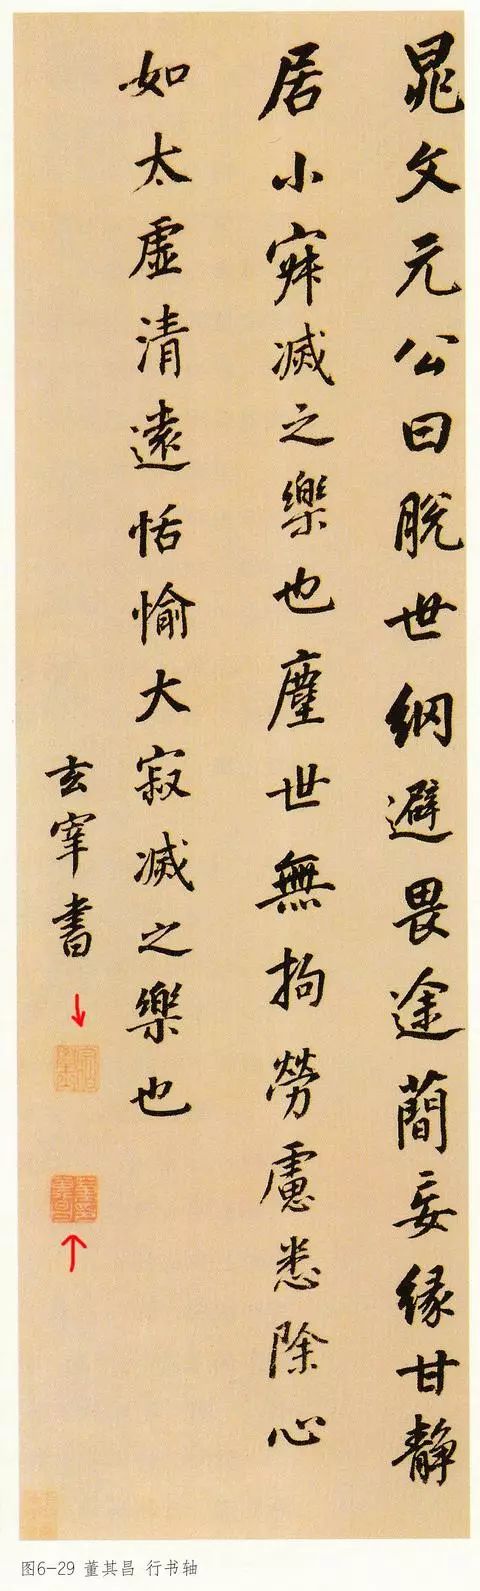 晁文元公曰脱世網避畏途蕳妄緣甘静
居小㝥滅之樂也塵世無拘勞慮悉除心
如太虛清遠恬愉大寂滅之樂也
玄宰書
图6-29 董其昌 行书轴